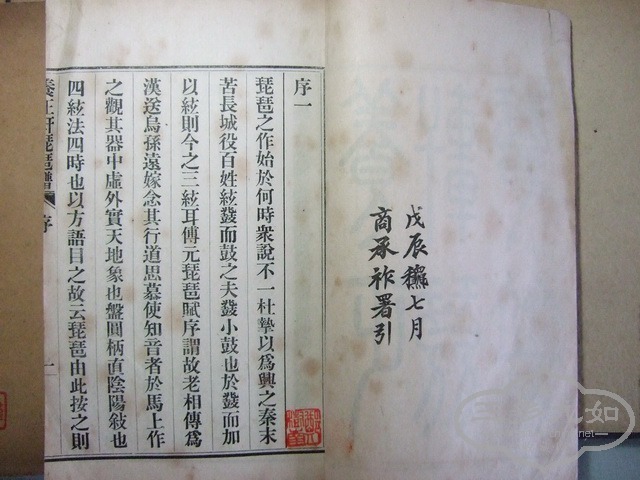 戊辰龝七月
商承祚署引
序一
琵琶之作始於何時衆說不一杜摯以爲興之秦末
苦長城役百姓絃鼗而鼓之夫鼗小鼓也於鼗而加
以絃則今之三絃耳傅元琵琶賦序謂故老相傳爲
漢送烏孫遠嫁念其行道思慕使知音者於馬上作
之觀其器中虛外實天地象也盤圓柄直陰陽敍也
四絃法四時也以方語目之故云琵琶由此按之則
養正軒琵琶譜 序 一